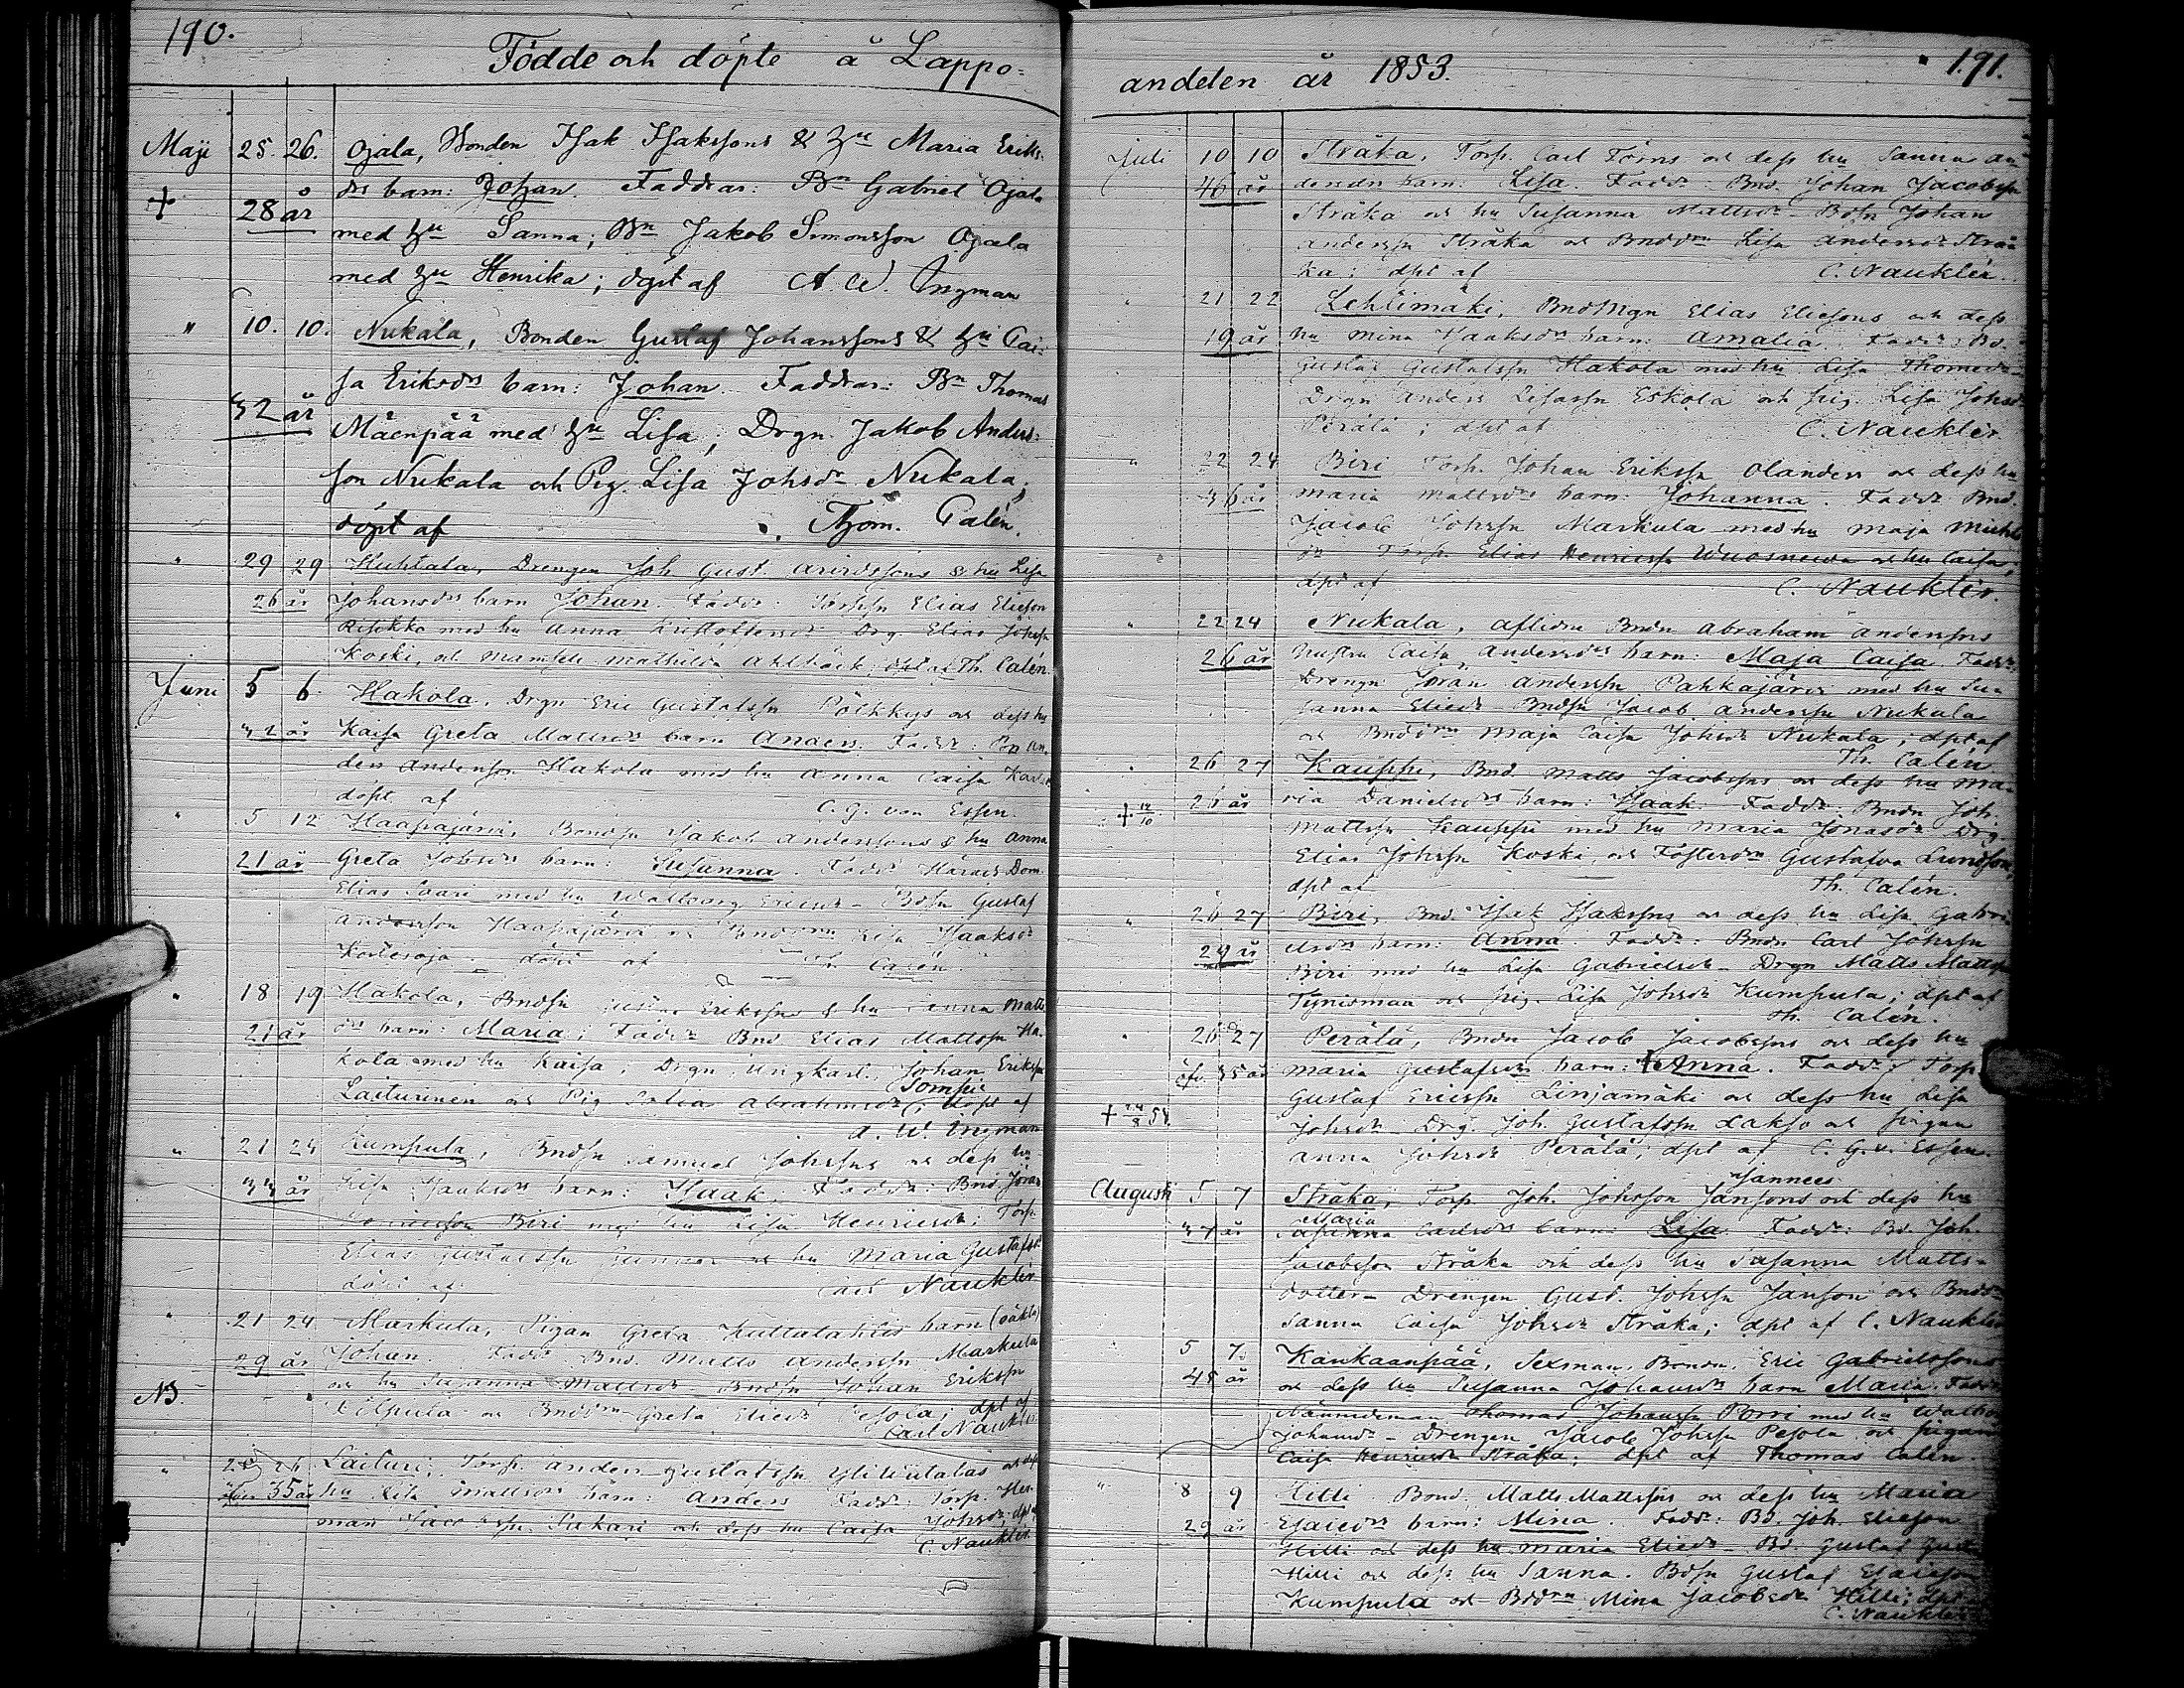 190.
Födde och döpte å Lappo-
Maji 25. 26. Ojala, Bonden Isak Isakssons & hu Maria Eriks-
drs barn: Johan. Faddrar: Bn Gabriel Ojala
+ 28 år
med hu Sanna; Bn Jakob Simonsson Ojala
med hu Henrika; döpt af A. W. Ingman
" 10. 10. Nukala, Bonden Gustaf Johanssons & hu Cai-
sa Eriksdrs barn: Johan. Faddrar: Bn Thomas
32 år
Mäenpää med hu Lisa; Drgn. Jakob Anders-
son Nukala och Pig. Lisa Johsdr Nukala;
döpt af Thom. Calén.
" 29 29 Huhtala, Drengen Joh. Gust. & hu Lisa
26 år Johansdrs barn Johan. Faddr: Elias Elieson
med hu Anna Kristoffersdr Drg. Elias Johsson
Koski, och Mamsell Mathilda Ahlbäck; dpt af Th. Calén.
Juni 5 6. Hakola, Drgn Eric Gustafssn Pölkkys och dess hu
32 år Kaisa Greta Mattsdrs barn Anders. Faddr: Bn An-
ders Andersson Hakola med hu Anna Caisa Karlsdr
döpt af C. G. von Essen.
" 5 12 Haapajärvi, Bondsn Jakob Anderssons & hu Anna
21 år Greta Johsdrs barn: Susanna. Faddr Härads Dom.
Elias Saari med hu Wallborg Ericsdr - Bdsn Gustaf
Andersson Haapajärvi och Lisa Isaaksdr
döpt af Th. Calén.
" 18 19 Hakola, Bndsn Gustaf Erikssns & hu Sanna Matts-
21 år drs barn: Maria; Faddr Bnd. Elias Mattssn Ha-
kola med hu Kaisa; Drgn, ungkarl, Johan Erikssn
Sompi
Laiturinen och Pig Abrahmsdr; döpt af
A. W. Ingman
" 21 24 Kumpula, Bndsn Samuel Johssns och dess hu
33 år Lisa Isaaksdrs barn: Isaak. Faddr: Bnd. Jöran
Biri med hu Lisa Henricsdr; Torp.
Elias Gustafssn och hu Maria Gustafsdr
döpt af Carl Nauklér
" 21 24 Markula, Pigan Greta barn (oäkta)
29 år Johan. Faddr Bnd. Matts Anderssn Markula
och hu Susanna Mattsdr Bndsn Johan Erikssn
NB.
och Greta Eliedr Pesola; dpt af
Carl Nauklér
" 26 Laituri, Torp. Anders Gustafssn och dess
35 år hu Lisa Mattsdrs barn: Anders Faddr: Torp. Her-
man Jacobssn Sakari och dess hu Caisa Johsdr; dpt af
C. Nauklér
andelen år 1853.
191.
Juli 10 10 Sträka, Torp. Carl Törns och dess hu Sanna An-
46 år dersdrs barn: Lisa. Faddr Bnd. Johan Jacobssn
Sträka och hu Susanna Mattsdr - Bdsn Johan
Anderssn Sträka och Bnddrn Lisa Andersdr Strä-
ka; dpt af C. Nauklér.
" 21 22 Lehtimäki, Bndmgn Elias Eliesons och dess
19 år hu Mina Isaaksdrs barn: Amalia. Faddr: Bd.
Gustaf Gustafssn Hakola med hu Lisa Thomasdr
Drgn Anders Eskola och pig. Lisa Johsdr
Perälä; dpt af C. Nauklér.
" 22 24 Biri Torp. Johan Erikssn Olanders och dess hu
36 år Maria Mattsdrs barn: Johanna. Faddr Bnd.
Jacob Johssn Markula med hu Maja Michels-
dr Torp. Elias Henricssn och hu Caisa;
dpt af C. Nauklér.
" 22 24 Nukala, aflidne Bndn Abraham Anderssons
26 år hustru Caisa Andersdrs barn: Maja Caisa. Faddr:
Drengn Jöran Anderssn Pahkajärvi med hu Su-
sanna Eliedr Bndsn Jacob Anderssn Nukala
och Bnddrn Maja Caisa Johsdr Nukala; dpt af
Th. Calén
" 26 27 Kauppi, Bnd. Matts Jacobssns och dess hu Ma-
+ 12/10 26 år ria Danielsdrs barn: Isaak. Faddr: Bndn Joh.
Mattssn Kauppi med hu Maria Jonasdr Drg.
Elias Johssn Koski, och Fosterdn Gustafva Lundson,
dpt af Th. Calén.
" 26 27 Biri, Bnd. Isak Isakssns och dess hu Lisa Gabri-
29 år elsdrs barn: Anna. Faddr: Bndn Carl Johssn
Biri med hu Lisa Gabrielsdr - Drgn Matts Mattssn
Tynismaa och pig. Lisa Johsdr Kumpula; dpt af
Th. Calén.
" 26 27 Perälä, Bndn Jacob Jacobssns och dess hu
öfv. 35 år Maria Gustafsdrs barn: + Anna. Faddr: Torp.
Gustaf Ericssn Linjamäki och dess hu Lisa
+ 24/8 58.
Johsdr - Drg. Joh. Gustafssn Lakso och pigan
Anna Johsdr Perälä; dpt af C. G. v. Essen.
Augusti 5 7 Sträka, Torp. Joh. Johsson Jansons och dess hu
37 år Maria Susanna Carlsdrs barn: Lisa. Faddr: Bd. Joh.
Jacobsson Sträka och dess hu Susanna Matts-
dotter - Drengen Gust. Johssn Janson och Bnddr
Sanna Caisa Johsdr Sträka; dpt af C. Nauklér
" 5 7. Kaukaanpää, Sexman, Bondn. Eric Gabrielssons
45 år och dess hu Susanna Johansdrs barn Maria. Faddr.
Nämndeman Thomas Johanssn Porri med hu Walbor
Johansdr - Drengen Jacob Johssn Pesola och pigan
Caisa Henricsdr Sträka; dpt af Thomas Calén.
" 8 9 Hilli Bond. Matts Mattssns och dess hu Maria
29 år Esaiedrs barn: Mina. Faddr: Bd. Joh. Elieson
Hilli och dess hu Maria Eliedr - Bd. Gustaf
Hilli och dess hu Sanna. Bdsn Gustaf Esaieson
Kumpula och Bddrn Mina Jacobsdr Hilli; dpt af
C. Nauklér